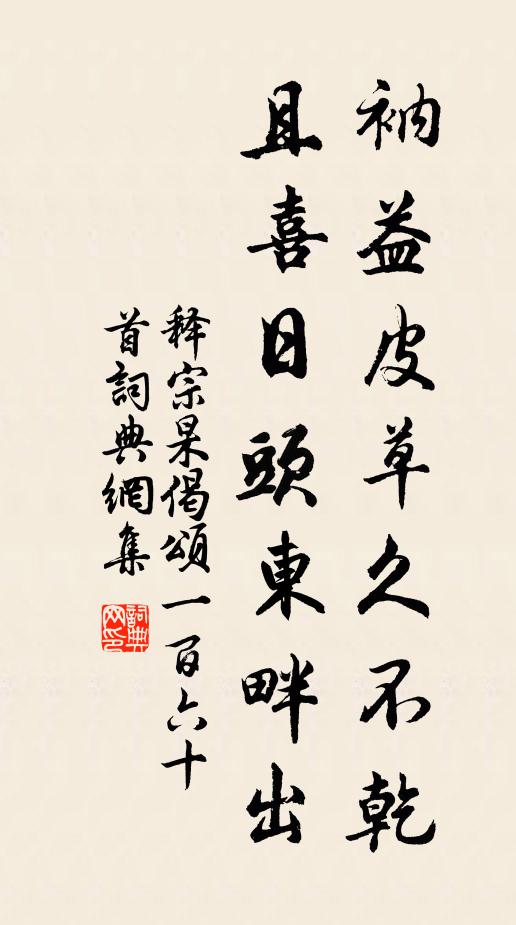 衲益皮草久不乾
且喜日頭東畔出
释宗杲偈頌一百六十
首詞典網集
詞典网印